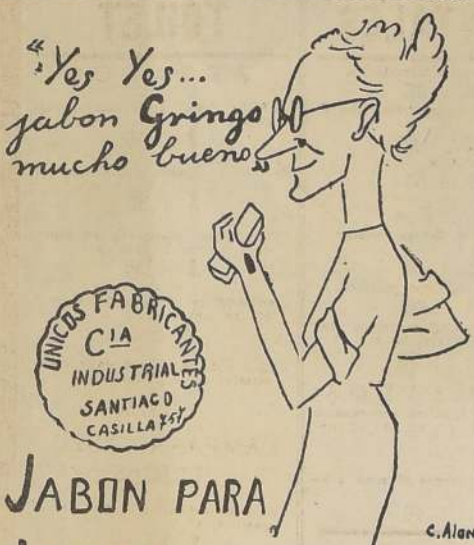 "Yes Yes...
jabon Gringo
mucho bueno"
UNICOS FABRICANTES
CIA
INDUSTRIAL
SANTIAGO
CASILLA
JABON PARA
C. Alon